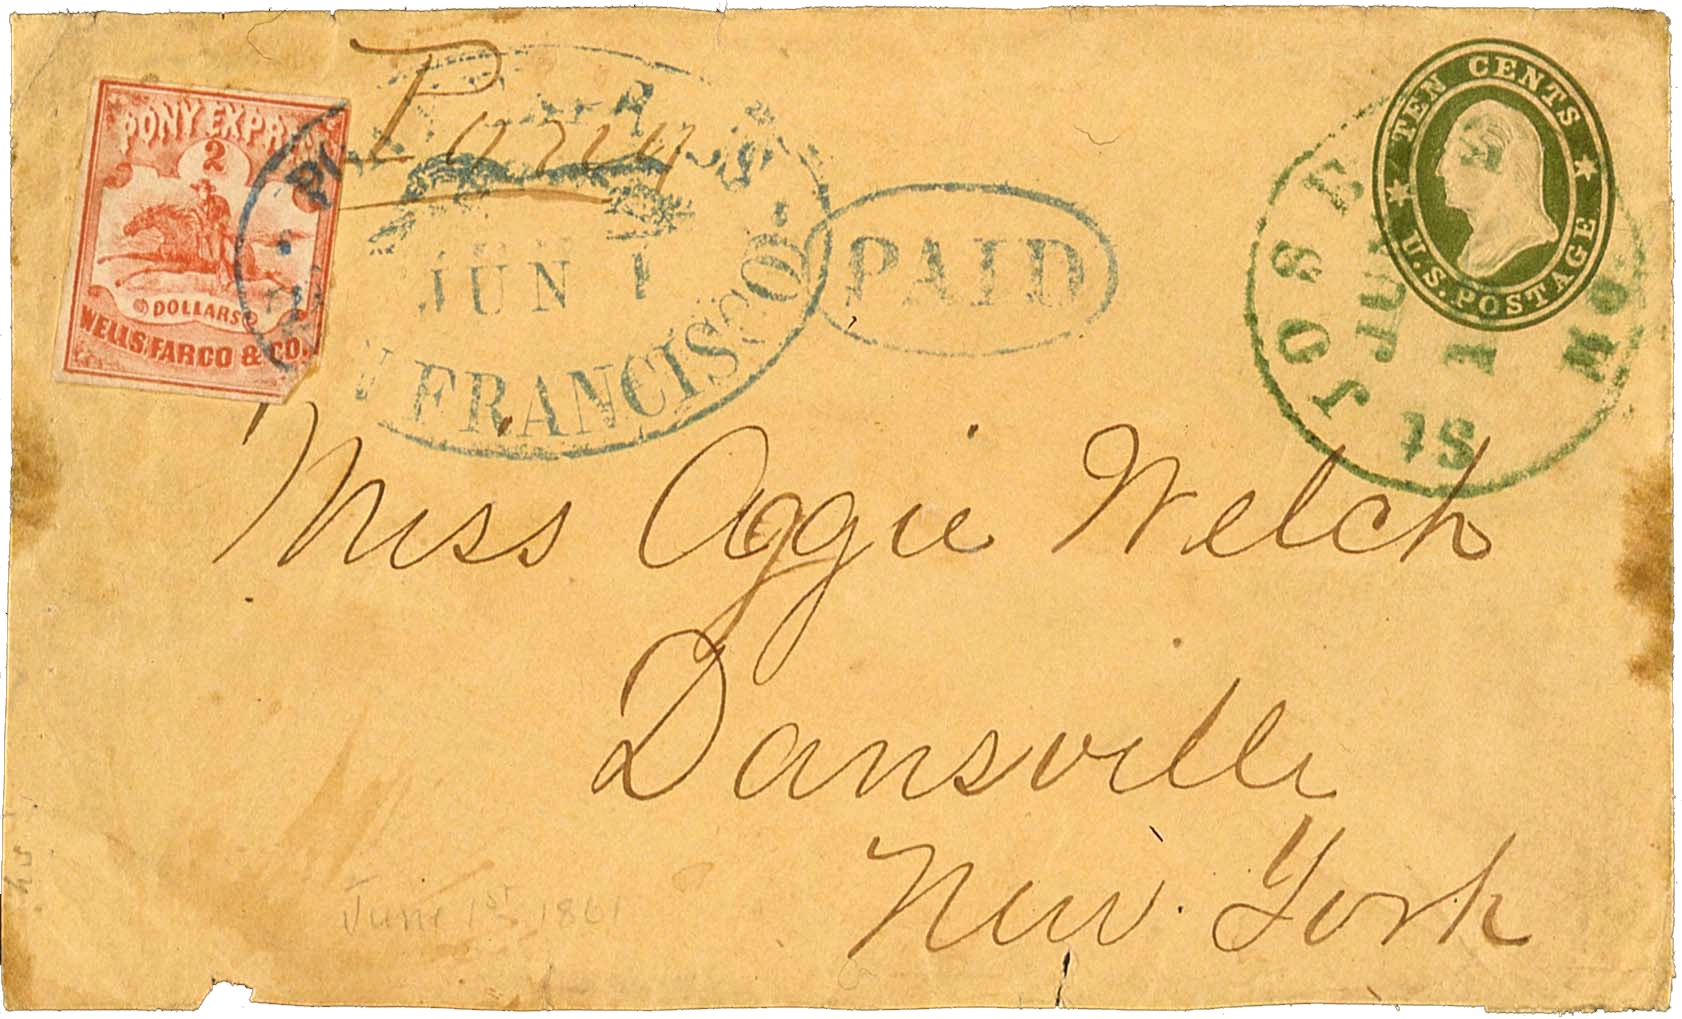 PONY EXPRE
2
DOLLARS
WELLS, FARGO & CO.
Pony
PO
JUN 1
N FRANCISCO
PAID
TEN CENTS
U.S. POSTAGE
ST JOSE
MO
Miss Aggie Welch
Dansville
New York
June 1st 1861